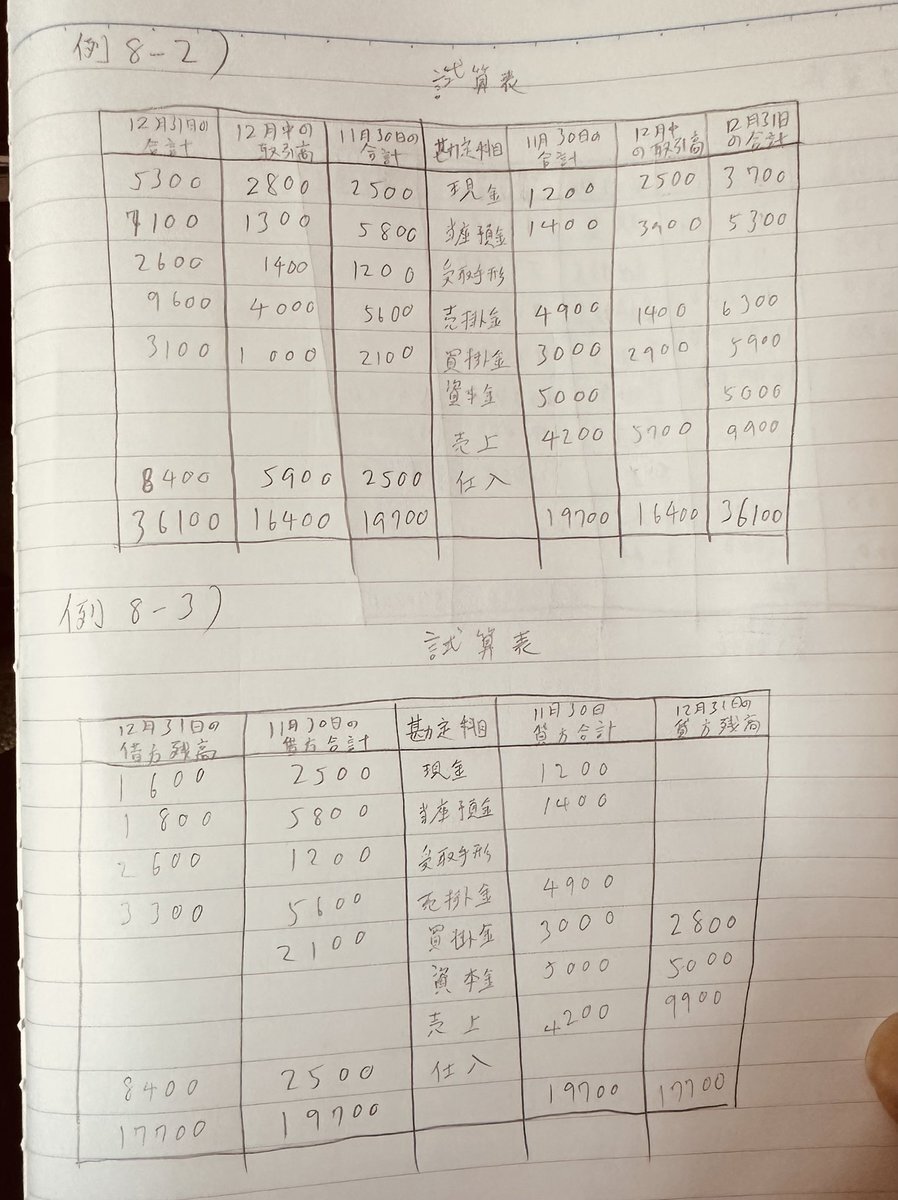 例 8-2)
試算表
12月31日の合計 12月中の取引高 11月30日の合計 勘定科目 11月30日の合計 12月中の取引高 12月31日の合計
5300 2800 2500 現金 1200 2500 3700
7100 1300 5800 当座預金 1400 3900 5300
2600 1400 1200 受取手形
9600 4000 5600 売掛金 4900 1400 6300
3100 1000 2100 買掛金 3000 2900 5900
資本金 5000 5000
売上 4200 5700 9900
8400 5900 2500 仕入
36100 16400 19700 19700 16400 36100
例 8-3)
試算表
12月31日の借方残高 11月30日の借方合計 勘定科目 11月30日貸方合計 12月31日の貸方残高
1600 2500 現金 1200
1800 5800 当座預金 1400
2600 1200 受取手形
3300 5600 売掛金 4900
2100 買掛金 3000 2800
資本金 5000 5000
売上 4200 9900
8400 2500 仕入
17700 19700 19700 17700